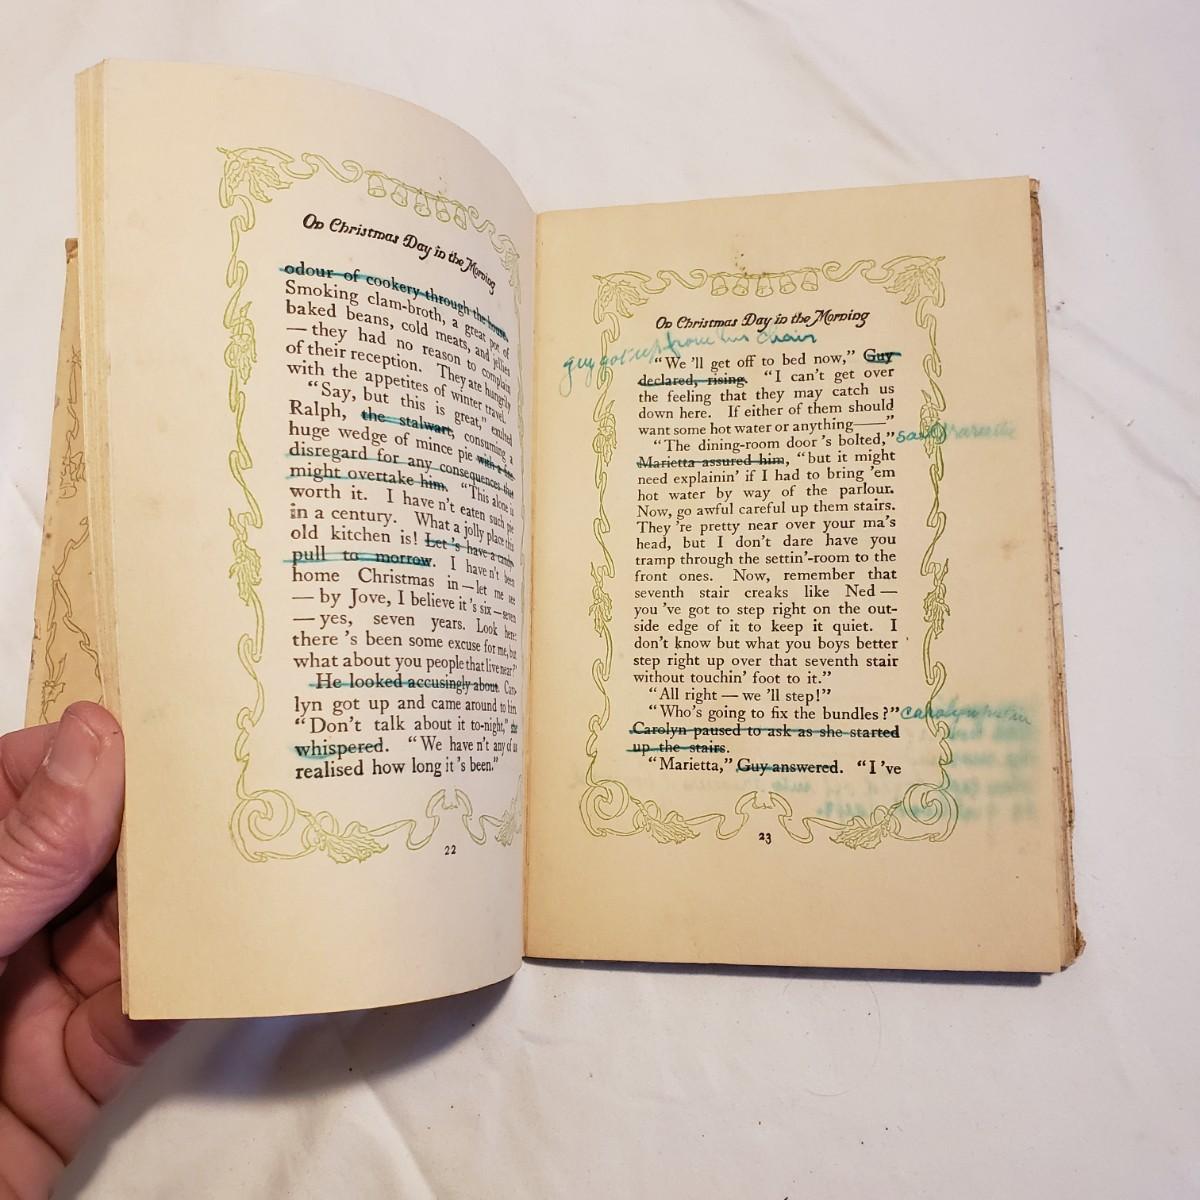 On Christmas Day in the Morning
odour of cookery through the house.
Smoking clam-broth, a great pot of
baked beans, cold meats, and jellies
— they had no reason to complain
of their reception. They ate hungrily
with the appetites of winter travel.
"Say, but this is great," exulted
Ralph, the stalwart, consuming a
huge wedge of mince pie with a fine
disregard for any consequences that
might overtake him. "This alone is
worth it. I have n't eaten such pie
in a century. What a jolly place this
old kitchen is! Let's have a candy
pull to morrow. I have n't been
home Christmas in — let me see
— by Jove, I believe it's six — seven
— yes, seven years. Look here:
there 's been some excuse for me, but
what about you people that live near?"
He looked accusingly about. Caro-
lyn got up and came around to him.
"Don't talk about it to-night," she
whispered. "We have n't any of us
realised how long it 's been."
22
On Christmas Day in the Morning
guy got up from his chair
"We 'll get off to bed now," Guy
declared, rising. "I can't get over
the feeling that they may catch us
down here. If either of them should
want some hot water or anything——"
"The dining-room door 's bolted," said Marietta
Marietta assured him, "but it might
need explainin' if I had to bring 'em
hot water by way of the parlour.
Now, go awful careful up them stairs.
They 're pretty near over your ma's
head, but I don't dare have you
tramp through the settin'-room to the
front ones. Now, remember that
seventh stair creaks like Ned —
you 've got to step right on the out-
side edge of it to keep it quiet. I
don't know but what you boys better
step right up over that seventh stair
without touchin' foot to it."
"All right — we 'll step!"
"Who's going to fix the bundles?" Carolyn
Carolyn paused to ask as she started
up the stairs.
"Marietta," Guy answered. "I 've
23